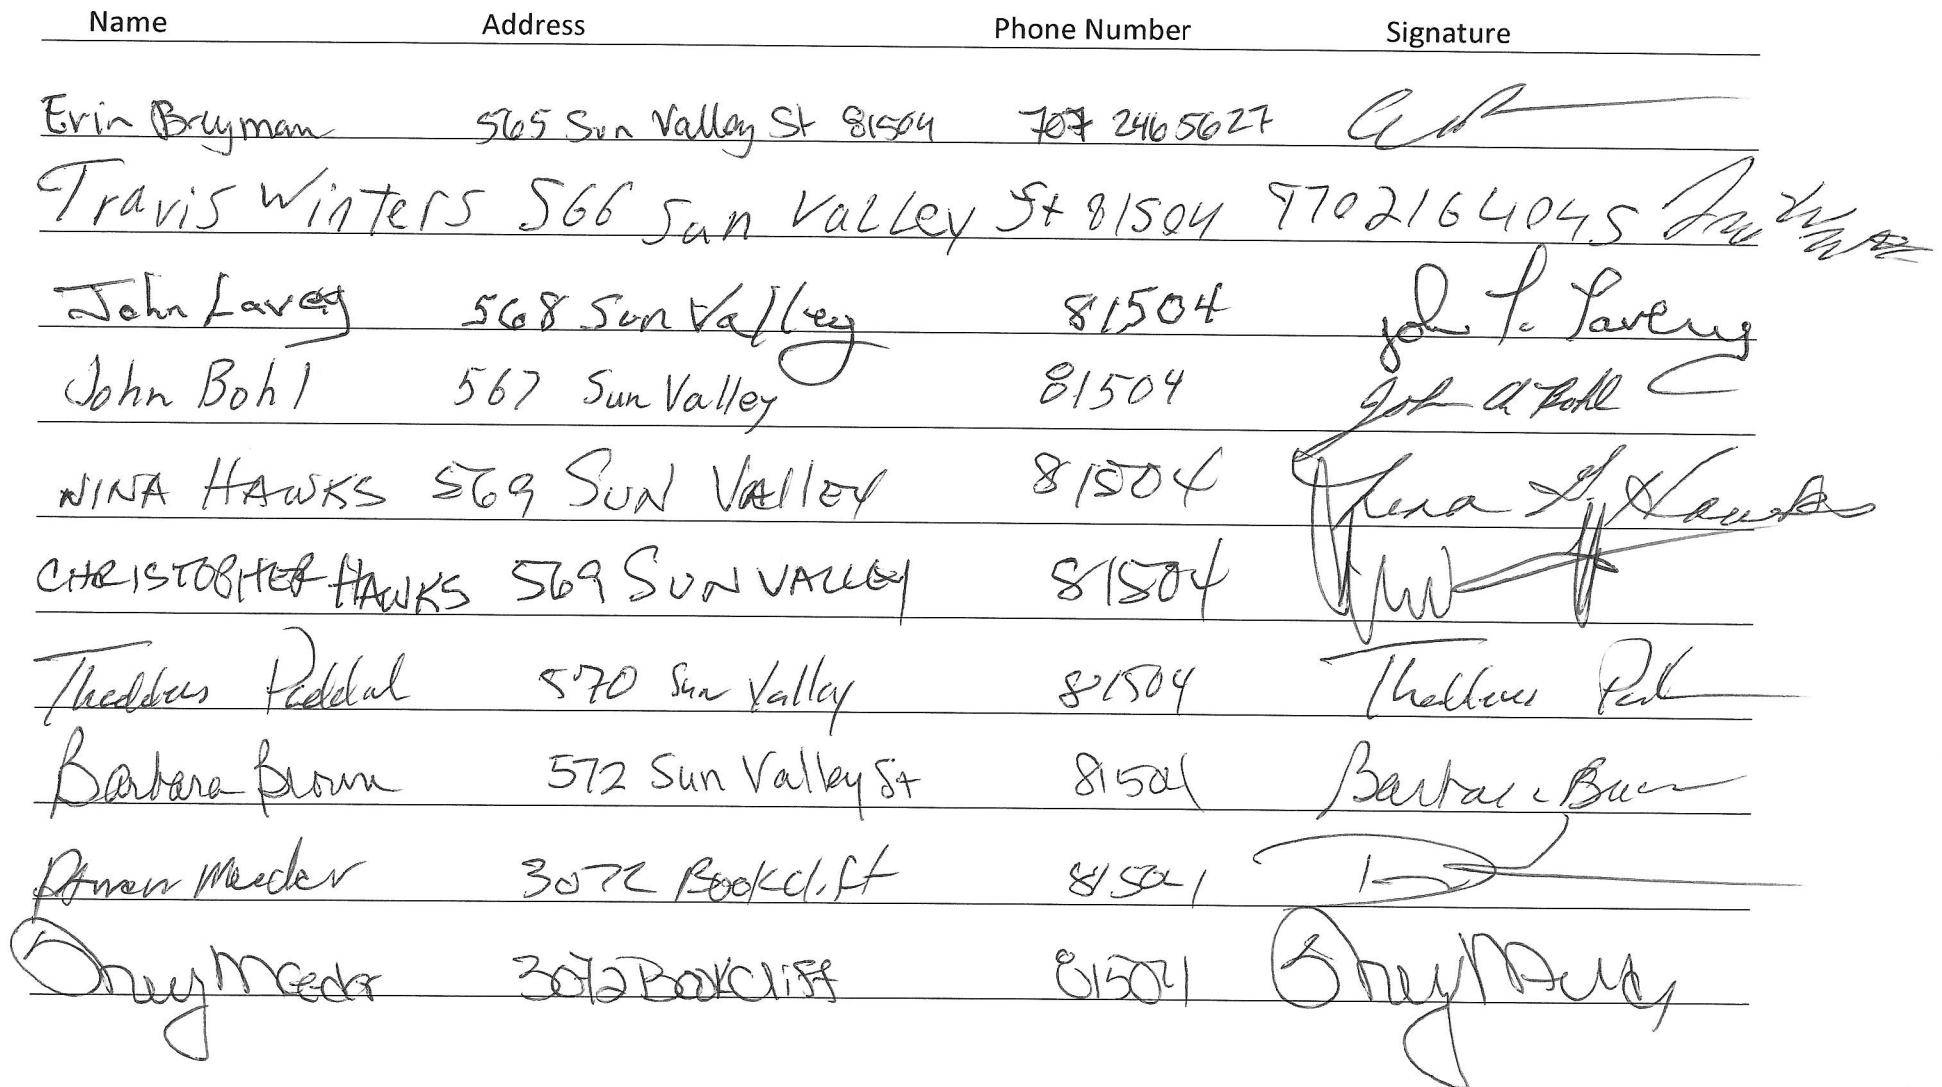 Name Address Phone Number Signature
Erin Bryman 565 Sun Valley St 81504 707 2465627
Travis Winters 566 Sun Valley St 81504 9702164045
John Lavey 568 Sun Valley 81504 John P. Lavery
John Bohl 567 Sun Valley 81504 John A Bohl
NINA HAWKS 569 SUN VAllEY 81504 Nina Hawks
CHRISTOPHER HAWKS 569 SUN VALLEY 81504
Thaddeus 570 Sun Valley 81504 Thaddeus
Barbara Brown 572 Sun Valley St 81504 Barbara Brown
Meeder 3072 Bookclift 81504
Meeder 3072 BookCliff 81504